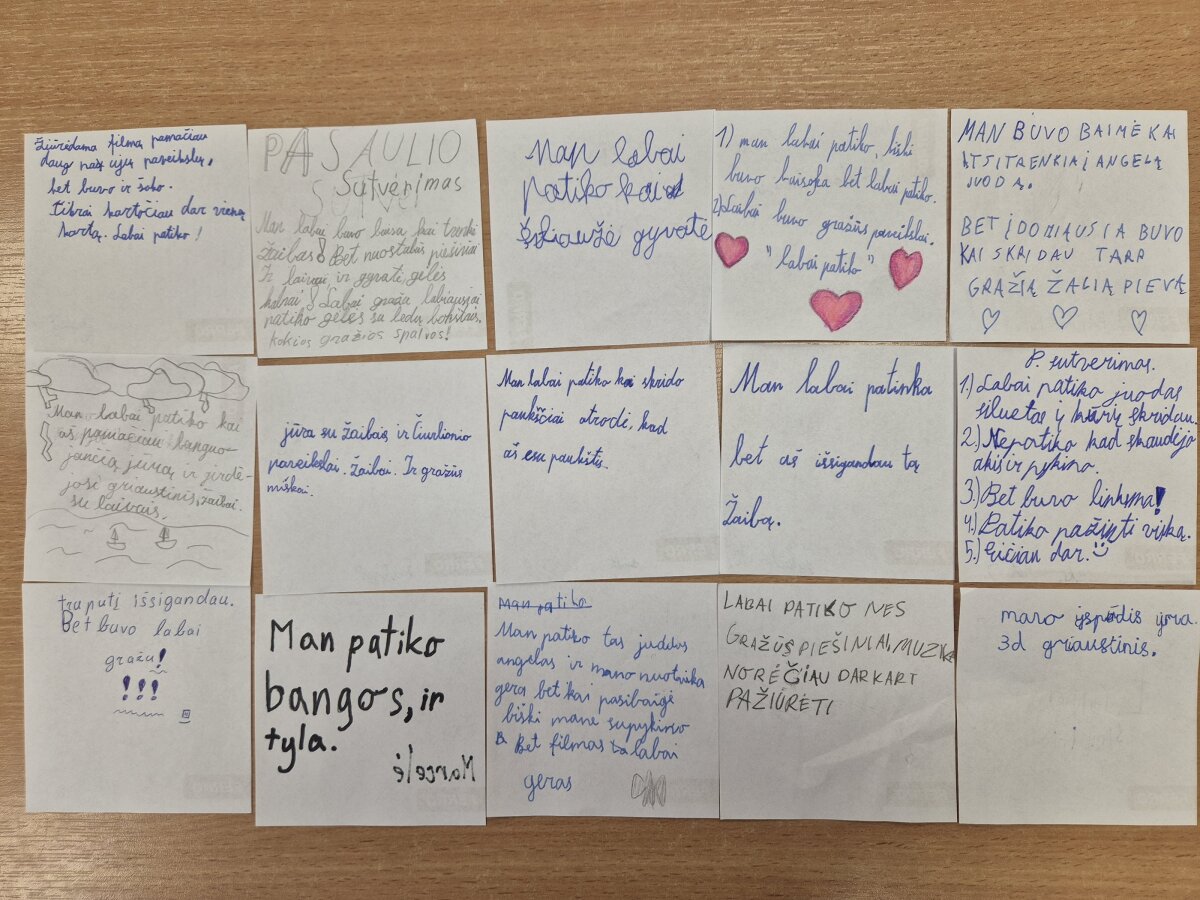 Žiūrėdama filmą pamačiau
daug naujų paveikslų,
bet buvo ir šoko.
tikrai kartočiau dar vieną
kartą. Labai patiko!
PASAULIO
Sutvėrimas
Man labai buvo baisu kai trenkė
žaibas! Bet nuostabūs piešiniai
Ir laivai, ir gyvatė, gėlės
labai gražu labiausiai
patiko gėlės su ledų bokštais.
kokios gražios spalvos!
Man labai
patiko kaid
šliaužė gyvatė
1) man labai patiko, biški
buvo baisoka bet labai patiko.
2) Labai buvo gražūs paveikslai.
"labai patiko"
MAN BUVO BAIMĖ KAI
ATSITRENKIAI Į ANGELĄ
JUODĄ.
BET ĮDOMIAUSIA BUVO
KAI SKRIDAU TARP
GRAŽIĄ ŽALIĄ PIEVĄ
Man labai patiko kai
aš pamačiau banguo-
jančią jūrą ir girdė-
josi griaustinis, žaibai.
su laivais.
jūra su žaibais ir Čiurlionio
paveikslai. Žaibai. Ir gražūs
miškai.
Man labai patiko kai skrido
paukščiai atrodė, kad
aš esu paukštis.
Man labai patinka
bet aš išsigandau tą
Žaibą.
P. sutvėrimas.
1.) Labai patiko juodas
siluetas į kūrį skridau.
2.) Nepatiko kad skaudėjo
akis ir pykino.
3.) Bet buvo linksma!
4.) Patiko pažinti viską.
5.) Eičiau dar.
truputį išsigandau.
Bet buvo labai
gražu!
!!!
Man patiko
bangos, ir
tyla.
Marcelė
Man patiko
Man patiko tas juddas
angelas ir mano nuotaika
gera bet kai pasibaigė
biški mane supykino
Bet filmas labai
geras
LABAI PATIKO NES
GRAŽŪS PIEŠINIAI, MUZIKA
NORĖČIAU DARKART
PAŽIŪRĖTI
mano įspūdis yra
3d griaustinis.